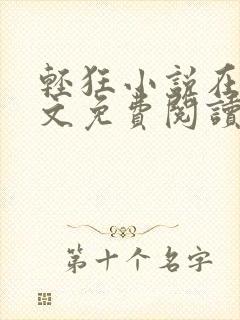 輕狂小說在
文免費閱讀
第十个名字